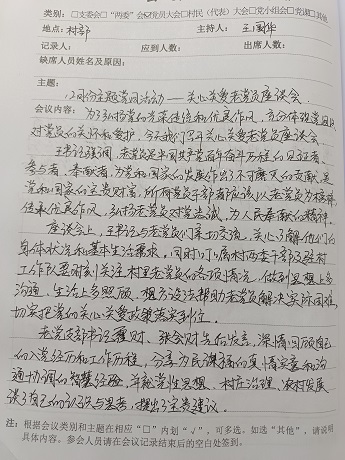 类别：□支委会□“两委”会☑党员大会□村民（代表）大会□党小组会□党课□其他
地点：村部 主持人：王国华
记录人： 应到人数： 出席人数：
缺席人员姓名及原因：
主题：
12月份主题党日活动——关心关爱老党员座谈会
会议内容：为了弘扬党的光荣传统和优良作风，充分体现党组织
对党员的关怀和爱护，今天我们召开关心关爱老党员座谈会。
王书记强调，老党员是中国共产党百年奋斗历程的见证者、
参与者、奉献者，为党和国家的发展作出了不可磨灭的贡献，是
党和国家的宝贵财富，所有党员干部都应该以老党员为榜样，
传承优良作风，弘扬老党员对党忠诚、为人民奉献的精神。
座谈会上，王书记与老党员们亲切交流，关心了解他们的
身体状况和基本生活需求，同时叮嘱村两委干部及驻村
工作队要时刻关注村里老党员的各项情况，做到思想上多
沟通、生活上多照顾，想方设法帮助老党员解决实际困难，
切实把党的关心关爱政策落实到位。
老党支部书记 对、张会财先后发言，深情回顾自己
的入党经历和工作历程，分享为民谋福的真情实意和沟
通协调的智慧经验，并就党性思想、村庄治理、农村发展
谈了自己的认识与思考，提出了宝贵建议。
注：根据会议类别和主题在相应“□”内划“√”，可多选。如选“其他”，请说明
具体内容。参会人员请在会议记录结束后的空白处签到。